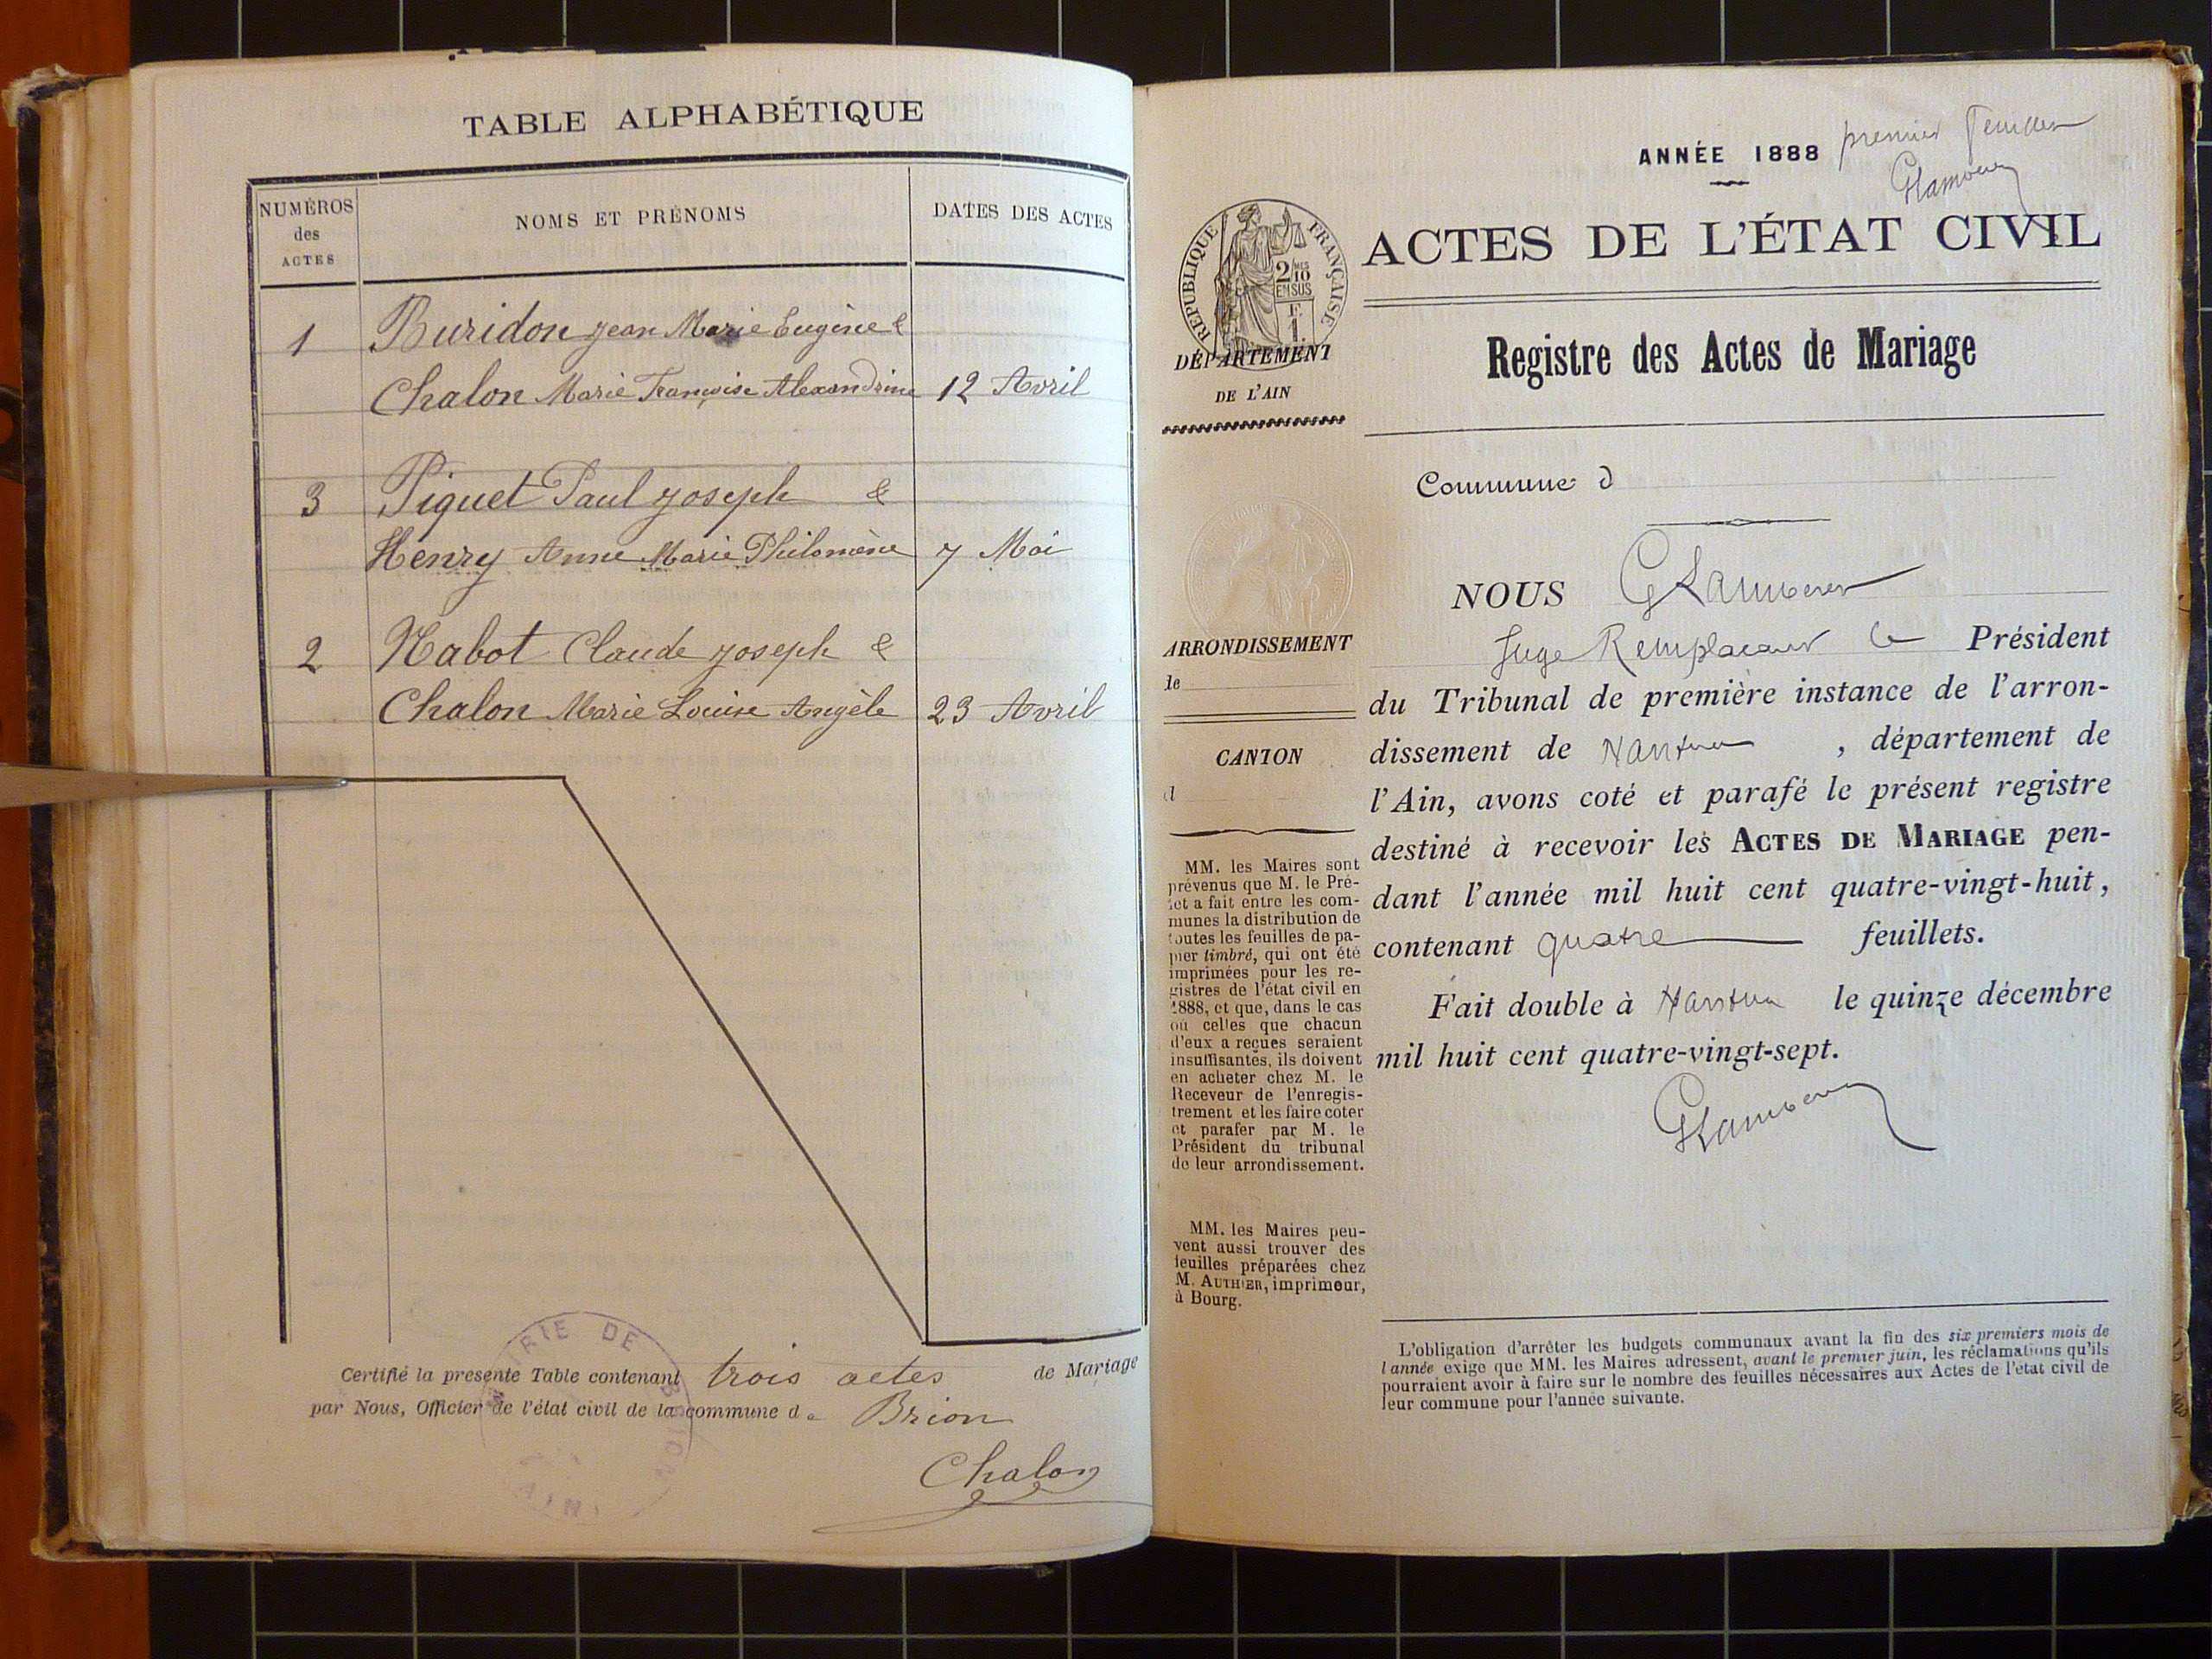 TABLE ALPHABÉTIQUE
NUMÉROS
des
ACTES
NOMS ET PRÉNOMS
DATES DES ACTES
1 Buridon Jean Marie Eugène &
Chalon Marie Françoise Alexandrine 12 Avril
3 Piquet Paul Joseph &
Henry Anne Marie Philomène 7 Mai
2 Nabot Claude Joseph &
Chalon Marie Louise Angèle 23 Avril
Certifié la presente Table contenant trois actes de Mariage
par Nous, Officier de l'état civil de la commune de Brion
MAIRIE DE BRION
AIN
Chalon
ANNÉE 1888 premier
RÉPUBLIQUE FRANÇAISE
2/10
EN SUS
1 F
ACTES DE L'ÉTAT CIVIL
DÉPARTEMENT
DE L'AIN
Registre des Actes de Mariage
Commune d
NOUS
Juge Remplaçant le Président
du Tribunal de première instance de l'arron-
dissement de Nantua, département de
l'Ain, avons coté et parafé le présent registre
destiné à recevoir les ACTES DE MARIAGE pen-
dant l'année mil huit cent quatre-vingt-huit,
contenant quatre feuillets.
Fait double à Nantua le quinze décembre
mil huit cent quatre-vingt-sept.
ARRONDISSEMENT
de
CANTON
d
MM. les Maires sont
prévenus que M. le Pré-
fet a fait entre les com-
munes la distribution de
toutes les feuilles de pa-
pier timbré, qui ont été
imprimées pour les re-
gistres de l'état civil en
1888, et que, dans le cas
où celles que chacun
d'eux a reçues seraient
insuffisantes, ils doivent
en acheter chez M. le
Receveur de l'enregis-
trement et les faire coter
et parafer par M. le
Président du tribunal
de leur arrondissement.
MM. les Maires peu-
vent aussi trouver des
feuilles préparées chez
M. AUTHIER, imprimeur,
à Bourg.
L'obligation d'arrêter les budgets communaux avant la fin des six premiers mois de
l'année exige que MM. les Maires adressent, avant le premier juin, les réclamations qu'ils
pourraient avoir à faire sur le nombre des feuilles nécessaires aux Actes de l'état civil de
leur commune pour l'année suivante.